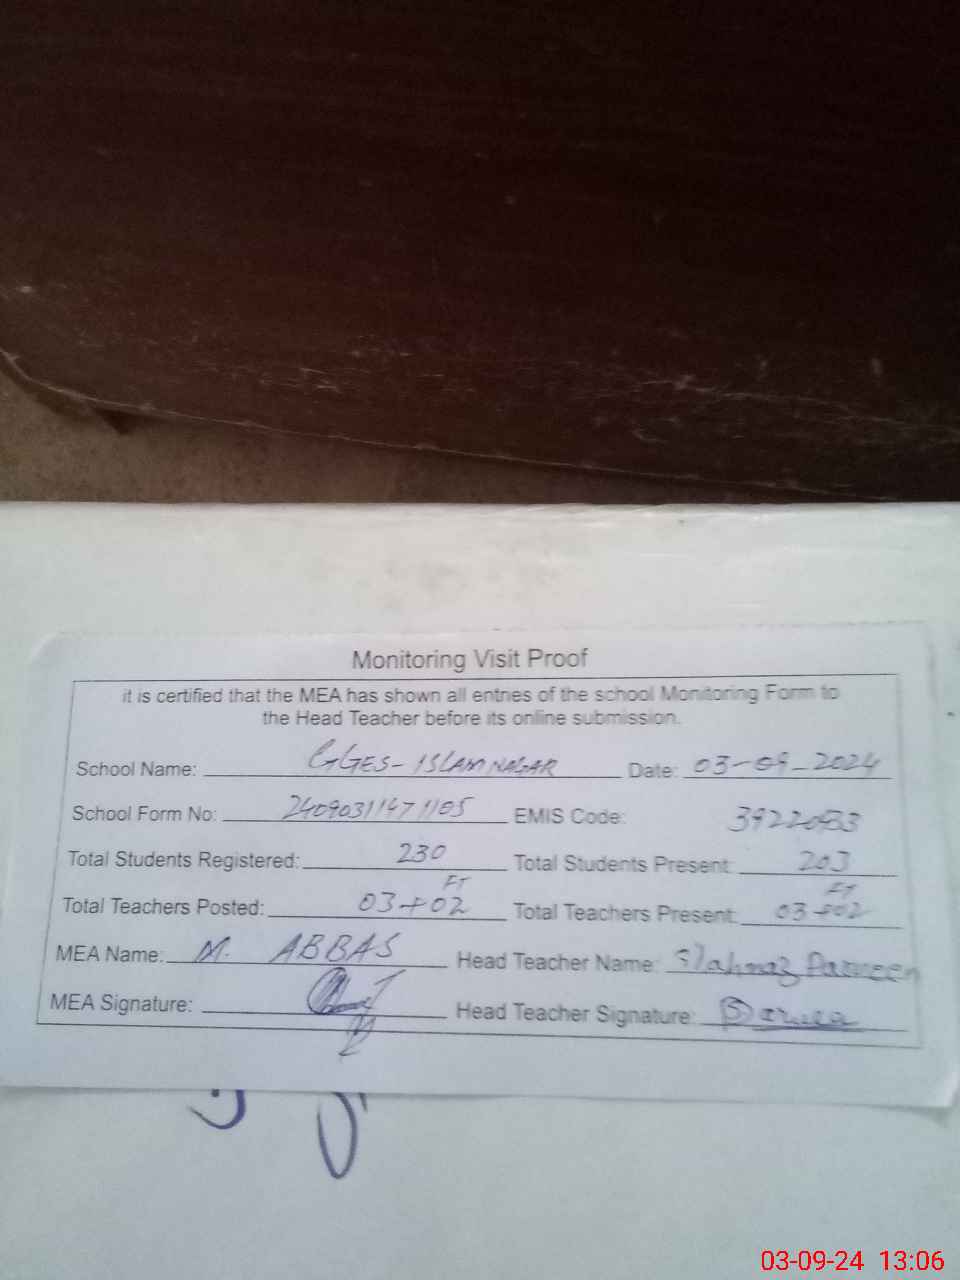 Monitoring Visit Proof
it is certified that the MEA has shown all entries of the school Monitoring Form to
the Head Teacher before its online submission.
School Name: GGES-ISLAMNAGAR Date: 03-09-2024
School Form No: EMIS Code:
Total Students Registered: 230 Total Students Present: 203
FT FT
Total Teachers Posted: 03+02 Total Teachers Present: 03+02
MEA Name: M. ABBAS Head Teacher Name: Shahnaz Parveen
MEA Signature: Head Teacher Signature:
03-09-24 13:06